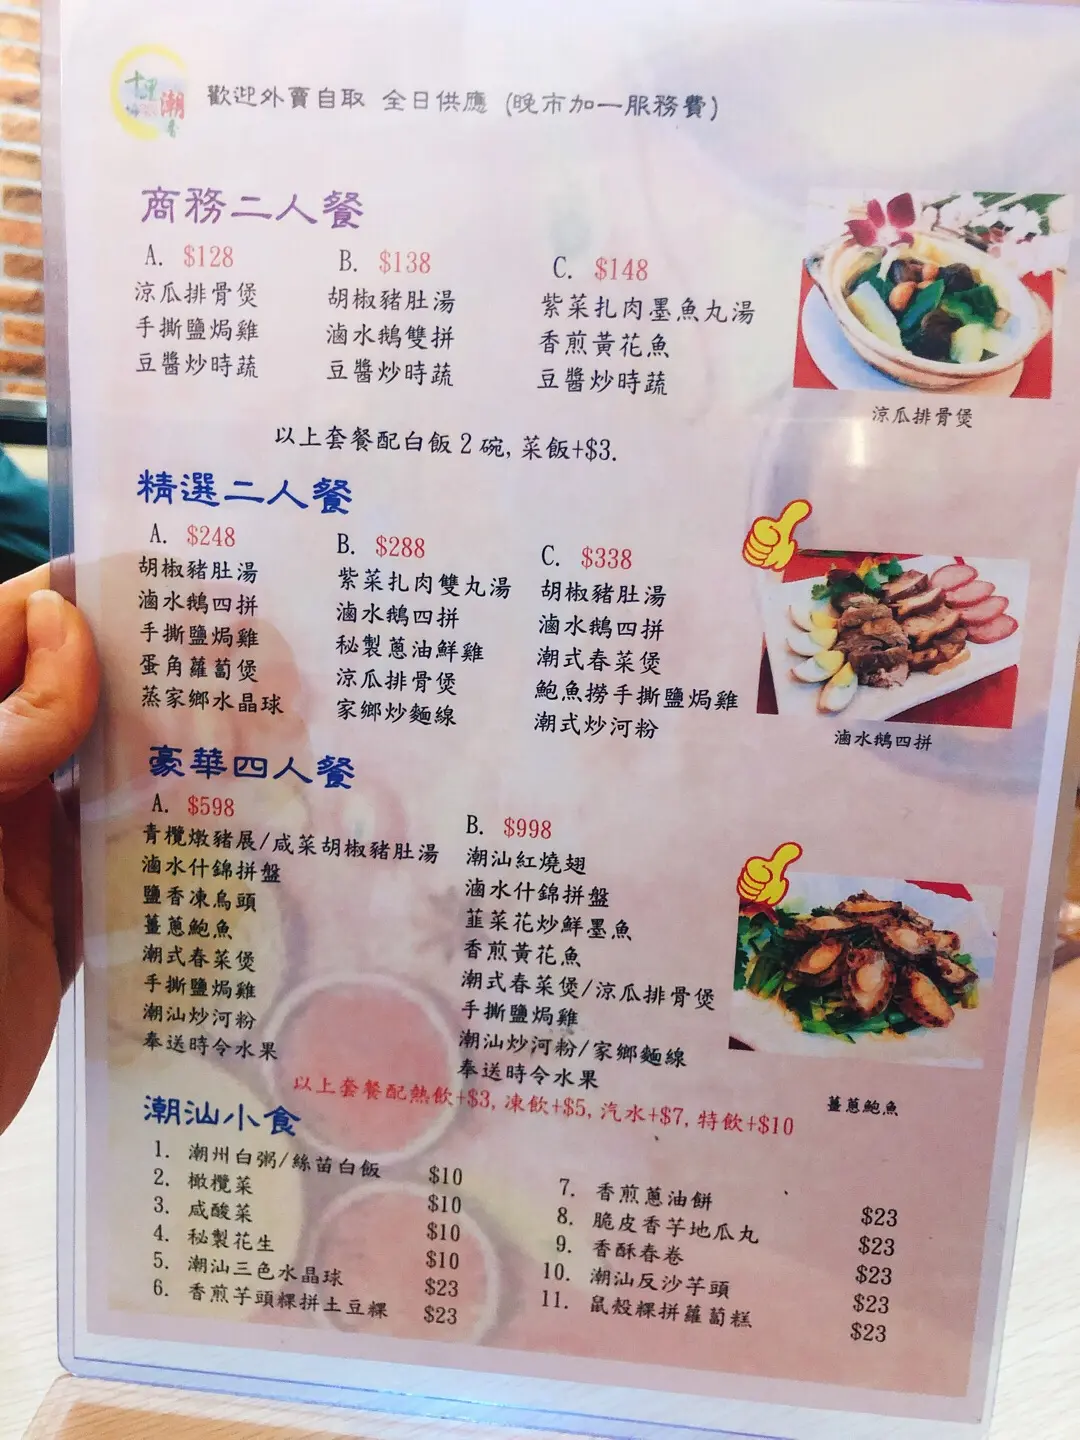 十里潮香
歡迎外賣自取 全日供應 (晚市加一服務費)
商務二人餐
A. $128
涼瓜排骨煲
手撕鹽焗雞
豆醬炒時蔬
B. $138
胡椒豬肚湯
滷水鵝雙拼
豆醬炒時蔬
C. $148
紫菜扎肉墨魚丸湯
香煎黃花魚
豆醬炒時蔬
涼瓜排骨煲
以上套餐配白飯2碗, 菜飯+$3.
精選二人餐
A. $248
胡椒豬肚湯
滷水鵝四拼
手撕鹽焗雞
蛋角蘿蔔煲
蒸家鄉水晶球
B. $288
紫菜扎肉雙丸湯
滷水鵝四拼
秘製蔥油鮮雞
涼瓜排骨煲
家鄉炒麵線
C. $338
胡椒豬肚湯
滷水鵝四拼
潮式春菜煲
鮑魚撈手撕鹽焗雞
潮式炒河粉
滷水鵝四拼
豪華四人餐
A. $598
青欖燉豬展/咸菜胡椒豬肚湯
滷水什錦拼盤
鹽香凍烏頭
薑蔥鮑魚
潮式春菜煲
手撕鹽焗雞
潮汕炒河粉
奉送時令水果
B. $998
潮汕紅燒翅
滷水什錦拼盤
韮菜花炒鮮墨魚
香煎黃花魚
潮式春菜煲/涼瓜排骨煲
手撕鹽焗雞
潮汕炒河粉/家鄉麵線
奉送時令水果
薑蔥鮑魚
以上套餐配熱飲+$3, 凍飲+$5, 汽水+$7, 特飲+$10
潮汕小食
1. 潮州白粥/絲苗白飯 $10
2. 橄欖菜 $10
3. 咸酸菜 $10
4. 秘製花生 $10
5. 潮汕三色水晶球 $23
6. 香煎芋頭粿拼土豆粿 $23
7. 香煎蔥油餅 $23
8. 脆皮香芋地瓜丸 $23
9. 香酥春卷 $23
10. 潮汕反沙芋頭 $23
11. 鼠殼粿拼蘿蔔糕 $23